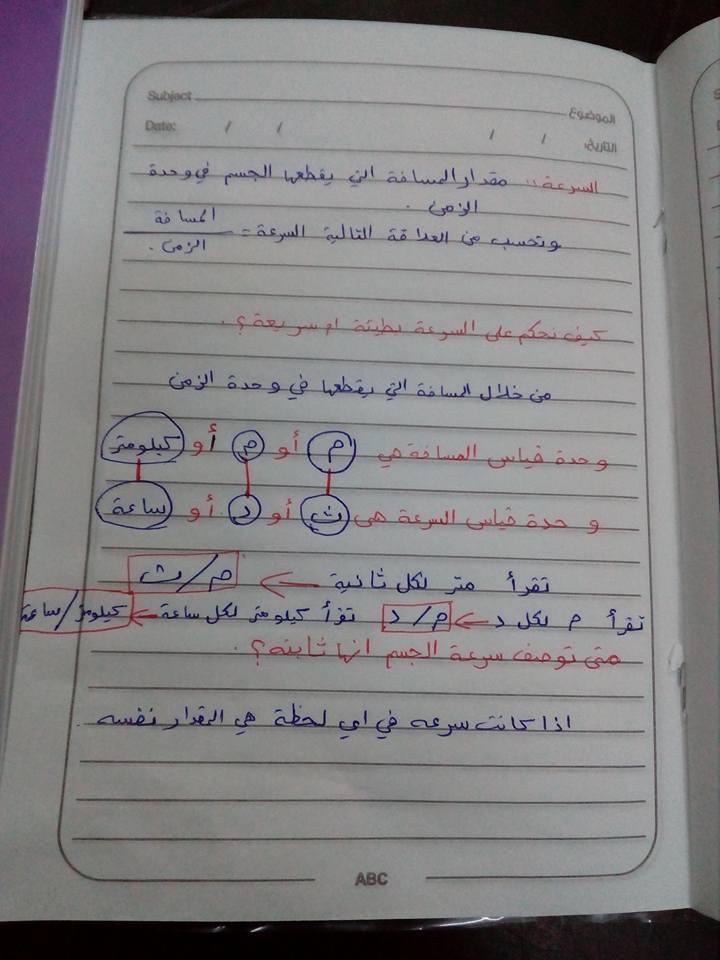 Subject الموضوع
Date: / / / / التاريخ:
السرعة :: مقدار المسافة التي يقطعها الجسم في وحدة
الزمن .
وتحسب من العلاقة التالية السرعة = المسافة
الزمن .
كيف نحكم على السرعة بطيئة ام سريعة ؟ .
من خلال المسافة التي يقطعها في وحدة الزمن
وحدة قياس المسافة هي م أو م أو كيلومتر
وحدة قياس السرعة هي ث أو د أو ساعة
تقرأ متر لكل ثانية ← م/ث
تقرأ م لكل د ← م/د تقرأ كيلومتر لكل ساعة ← كيلومتر/ساعة
متى توصف سرعة الجسم انها ثابته ؟ .
اذا كانت سرعه في اي لحظة هي المقدار نفسه .
ABC